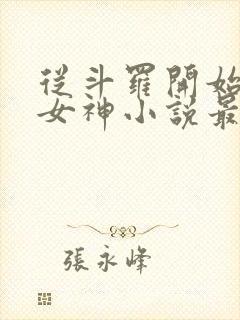 從斗羅開始
女神小說最
張永峰